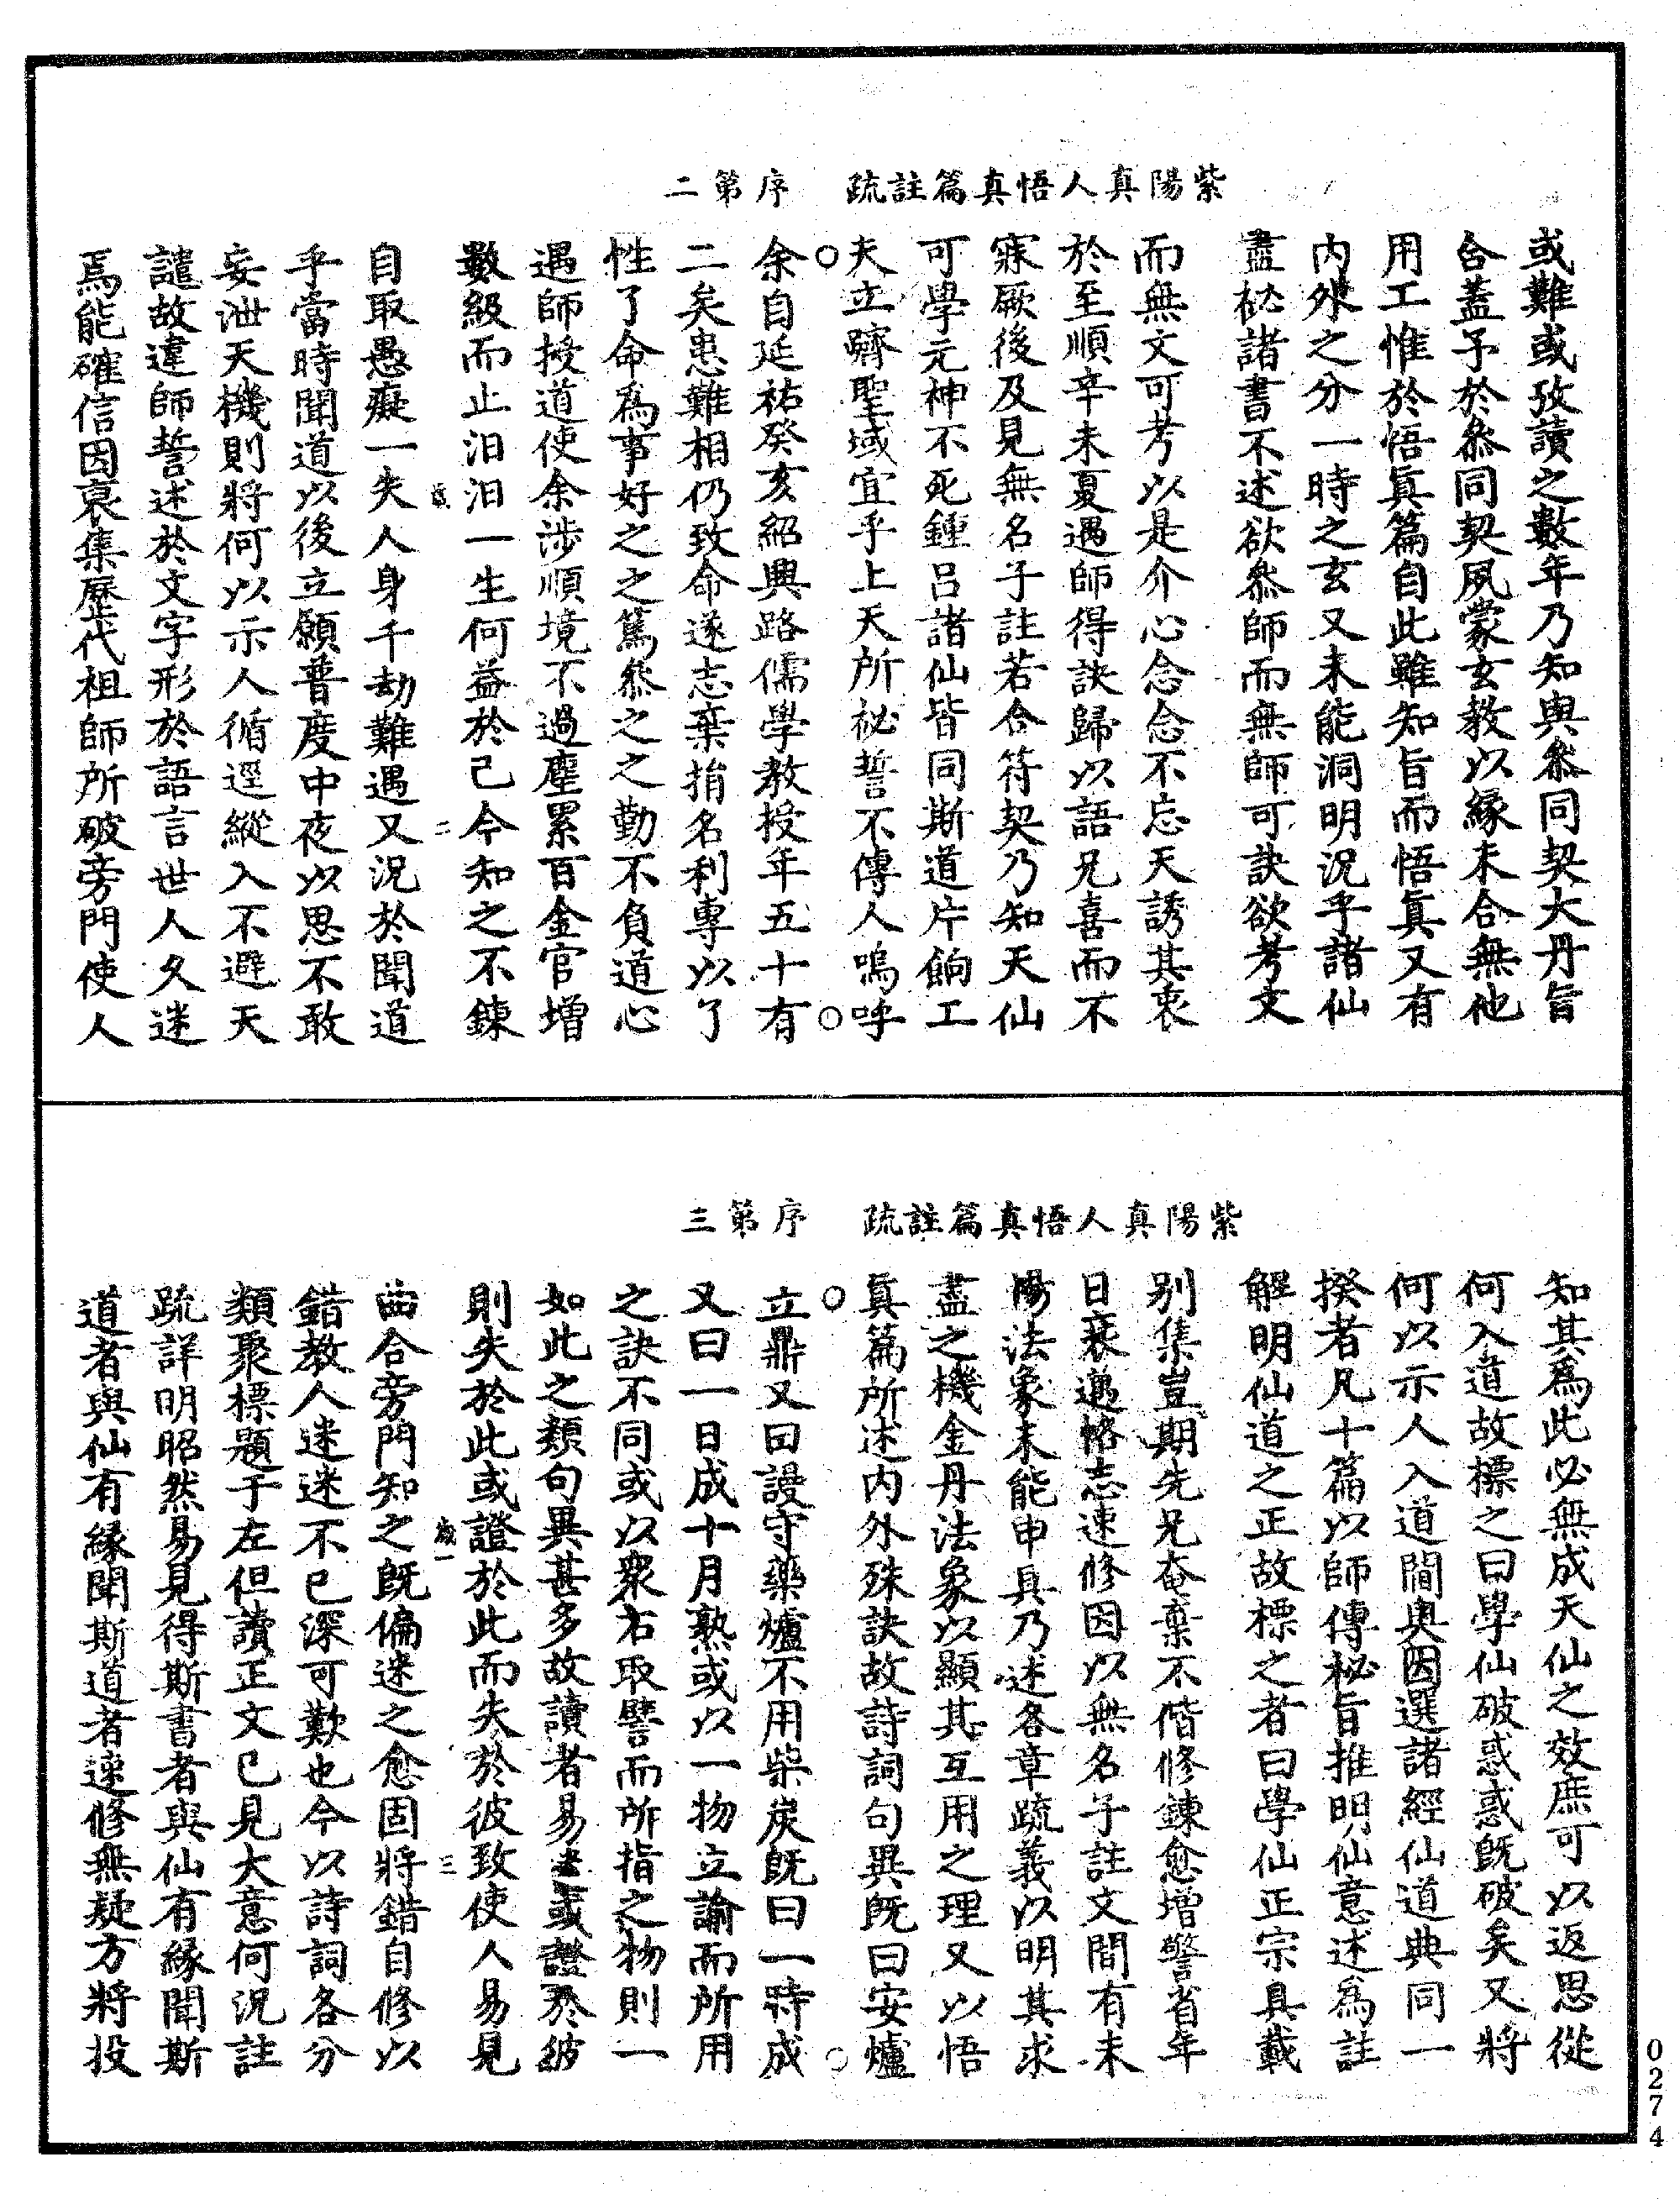 紫陽真人悟真篇註疏　序第二
或難或攷讀之數年乃知與叅同契大丹旨
合蓋予於叅同契夙蒙玄教以緣未合無他
用工惟於悟眞篇自此雖知旨而悟眞又有
内外之分一時之玄又未能洞明況乎諸仙
盡祕諸書不述欲叅師而無師可訣欲考文
而無文可考以是介心念念不忘天誘其衷
於至順辛未夏遇師得訣歸以語兄喜而不
寐厥後及見無名子註若合符契乃知天仙
可學元神不死鍾呂諸仙皆同斯道片餉工
夫立躋聖域宜乎上天所祕誓不傳人嗚呼
余自延祐癸亥紹興路儒學教授年五十有
二矣患難相仍致命遂志棄捐名利專以了
性了命爲事好之之篤叅之之勤不負道心
遇師授道使余涉順境不過塵累百金官增
數級而止汨汨一生何益於己今知之不鍊
自取愚癡一失人身千劫難遇又況於聞道
乎當時聞道以後立願普度中夜以思不敢
妄泄天機則將何以示人循逕縱入不避天
譴故違師誓述於文字形於語言世人久迷
焉能確信因裒集歷代祖師所破旁門使人
二
紫陽真人悟真篇註疏　序第三
知其爲此必無成天仙之效庶可以返思從
何入道故標之曰學仙破惑惑旣破矣又將
何以示人入道閫奥因選諸經仙道典同一
揆者凡十篇以師傳祕旨推明仙意述爲註
解明仙道之正故標之者曰學仙正宗具載
别集豈期先兄奄棄不偕修鍊愈增警省年
日衰邁恪志速修因以無名子註文間有未
陽法象未能申具乃述各章疏義以明其求
盡之機金丹法象以顯其互用之理又以悟
眞篇所述内外殊訣故詩詞句異旣曰安爐
立鼎又曰謾守藥爐不用柴炭旣曰一時成
又曰一日成十月熟或以一物立論而所用
之訣不同或以衆右取譬而所指之物則一
如此之類句異甚多故讀者易惑或證於彼
則失於此或證於此而失於彼致使人易見
曲合旁門知之旣偏迷之愈固將錯自修以
錯教人迷迷不已深可歎也今以詩詞各分
類聚標題于左但讀正文已見大意何況註
疏詳明昭然易見得斯書者與仙有緣聞斯
道者與仙有緣聞斯道者速修無疑方將投
歲一
三
0274